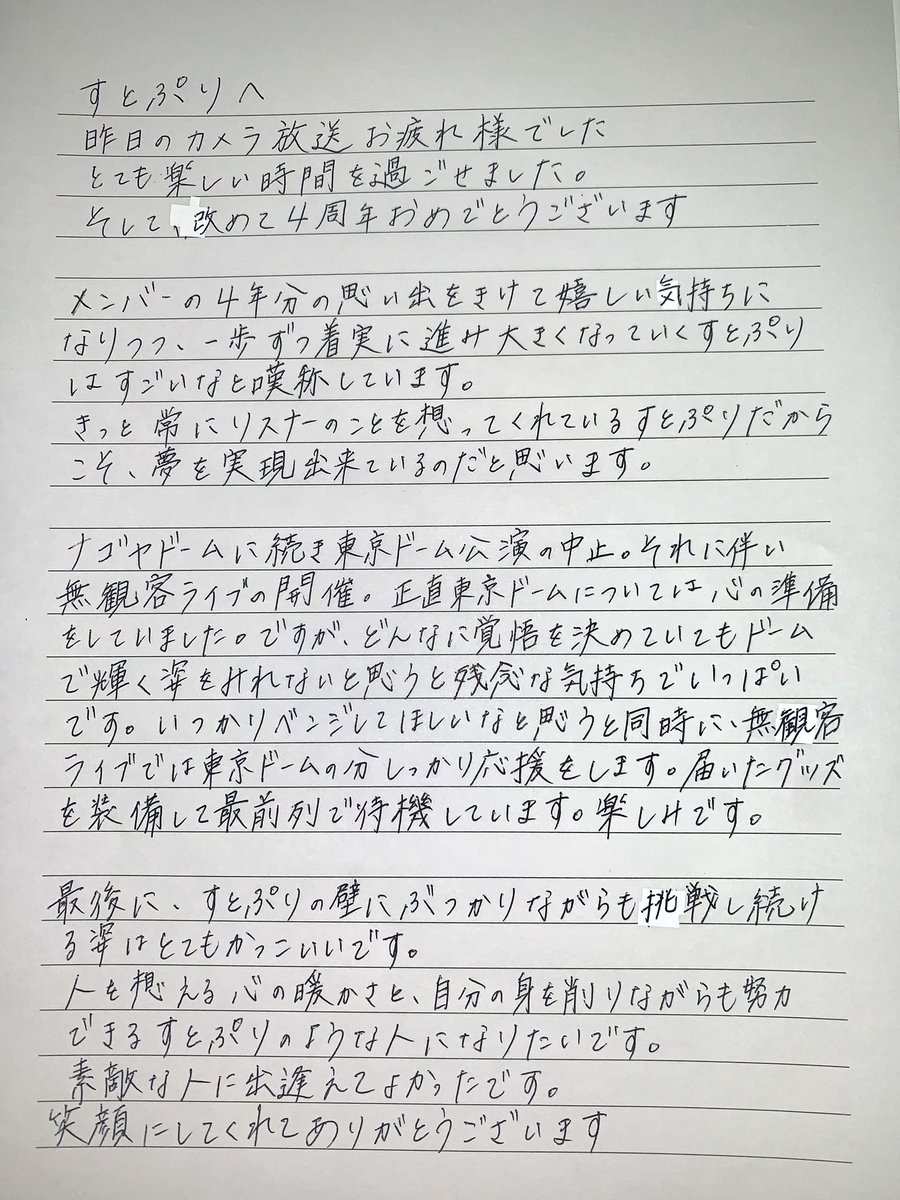 すとぷりへ
昨日のカメラ放送お疲れ様でした
とても楽しい時間を過ごせました。
そして、改めて4周年おめでとうございます
メンバーの4年分の思い出をきけて嬉しい気持ちに
なりつつ、一歩ずつ着実に進み大きくなっていくすとぷり
はすごいなと嘆称しています。
きっと常にリスナーのことを想ってくれているすとぷりだから
こそ、夢を実現出来ているのだと思います。
ナゴヤドームに続き東京ドーム公演の中止。それに伴い
無観客ライブの開催。正直東京ドームについては心の準備
をしていました。ですが、どんなに覚悟を決めていてもドーム
で輝く姿をみれないと思うと残念な気持ちでいっぱい
です。いつかリベンジしてほしいなと思うと同時に、無観客
ライブでは東京ドームの分しっかり応援をします。届いたグッズ
を装備して最前列で待機しています。楽しみです。
最後に、すとぷりの壁にぶつかりながらも挑戦し続け
る姿はとてもかっこいいです。
人を想える心の暖かさと、自分の身を削りながらも努力
できるすとぷりのような人になりたいです。
素敵な人に出逢えてよかったです。
笑顔にしてくれてありがとうございます